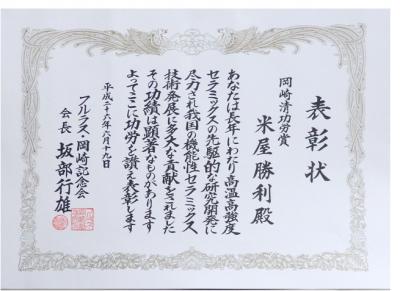 表彰状
岡崎清功労賞
米屋勝利殿
あなたは長年にわたり高温高強度
セラミックスの先駆的な研究開発に
尽力され我国の機能性セラミックス
技術発展に多大な貢献をされました
その功績は顕著なものがあります
よってここに功労を讃え表彰します
平成二十六年六月十九日
フルラス・岡崎記念会
会長 坂部行雄